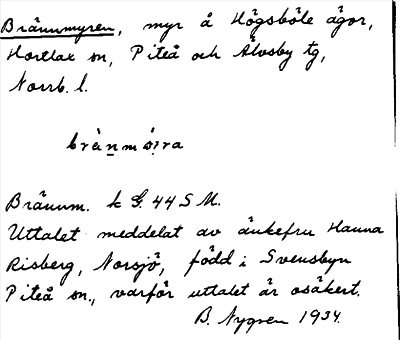 Brännmyren, myr å Högsböle ägor,
Hortlax sn, Piteå och Älvsby tg,
Norrb. l.
Brännm. k G. 44 S M.
Uttalet meddelat av änkefru Hanna
Risberg, Norsjö, född i Svensbyn
Piteå sn, varför uttalet är osäkert.
B. Nygren 1934.